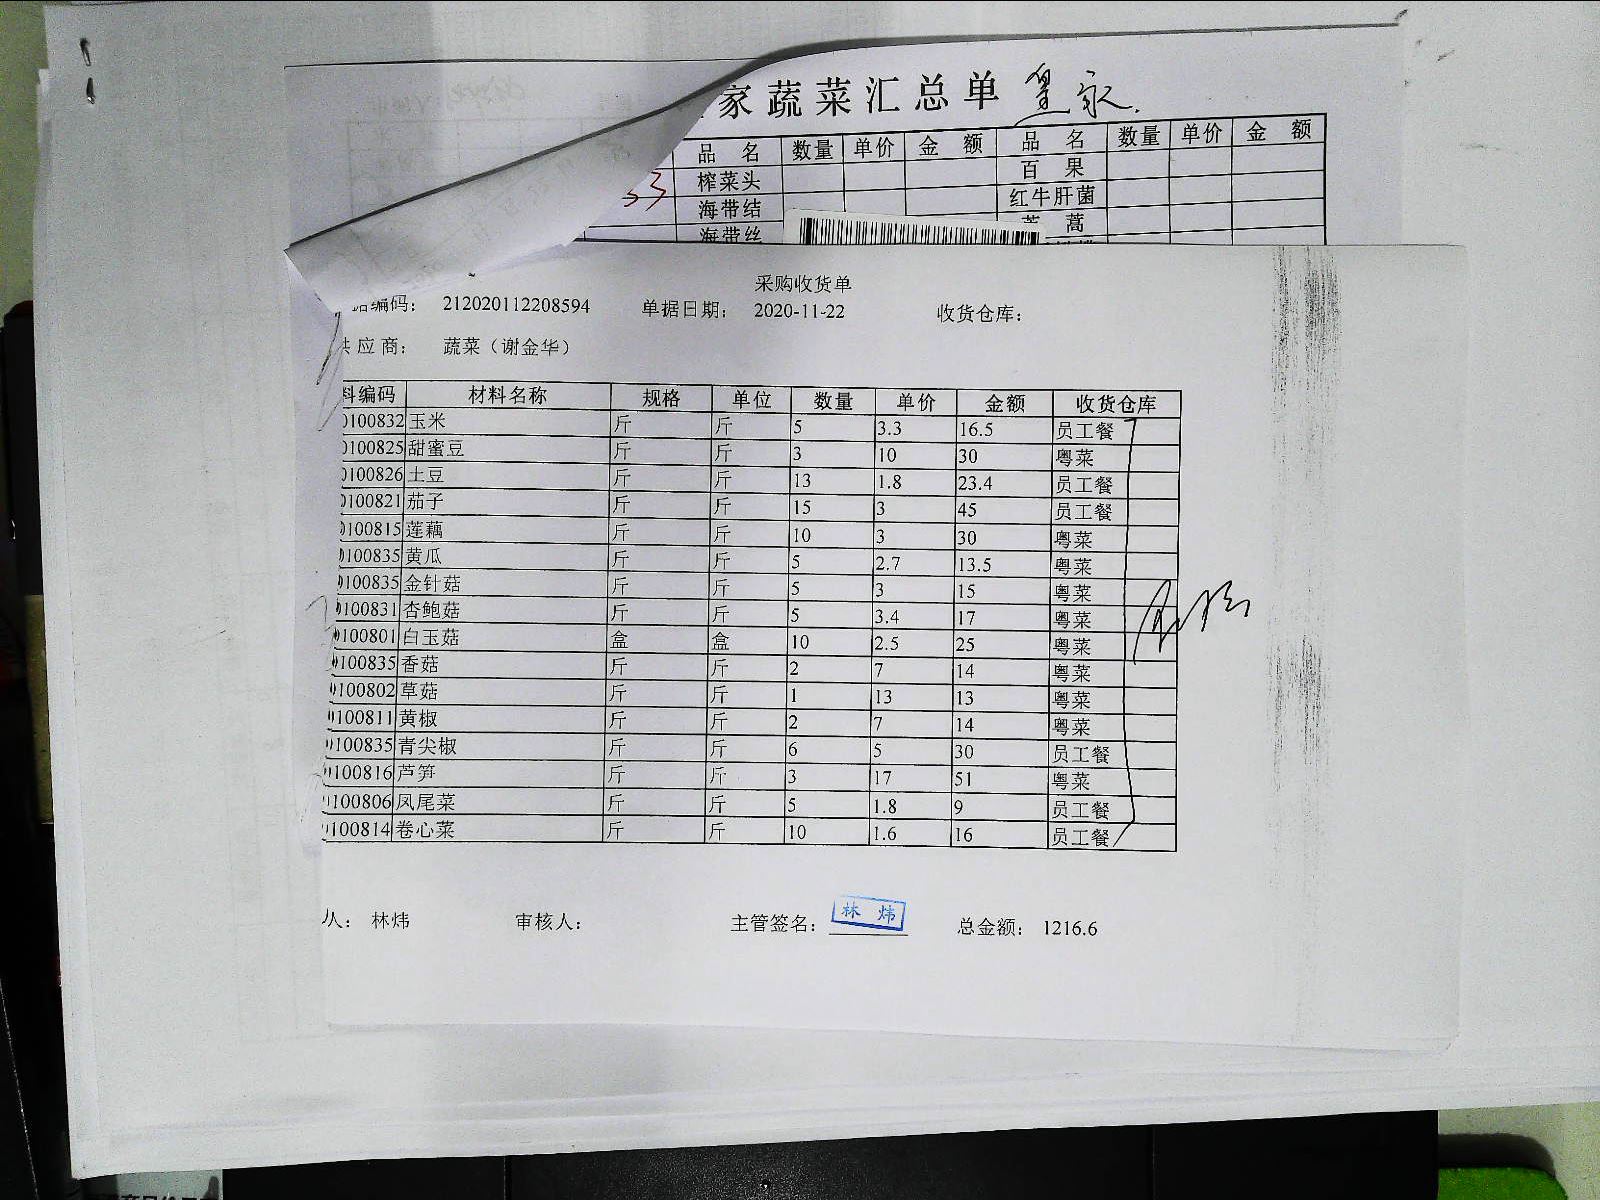 家蔬菜汇总单 皇家
品 名 数量 单价 金 额 品 名 数量 单价 金 额
榨菜头 百 果
33 海带结 红牛肝菌
海带丝 蒿
采购收货单
据编码： 212020112208594 单据日期： 2020-11-22 收货仓库：
供应商： 蔬菜（谢金华）
料编码 材料名称 规格 单位 数量 单价 金额 收货仓库
0100832 玉米 斤 斤 5 3.3 16.5 员工餐
0100825 甜蜜豆 斤 斤 3 10 30 粤菜
0100826 土豆 斤 斤 13 1.8 23.4 员工餐
0100821 茄子 斤 斤 15 3 45 员工餐
0100815 莲藕 斤 斤 10 3 30 粤菜
0100835 黄瓜 斤 斤 5 2.7 13.5 粤菜
0100835 金针菇 斤 斤 5 3 15 粤菜
0100831 杏鲍菇 斤 斤 5 3.4 17 粤菜
0100801 白玉菇 盒 盒 10 2.5 25 粤菜
0100835 香菇 斤 斤 2 7 14 粤菜
0100802 草菇 斤 斤 1 13 13 粤菜
0100811 黄椒 斤 斤 2 7 14 粤菜
0100835 青尖椒 斤 斤 6 5 30 员工餐
0100816 芦笋 斤 斤 3 17 51 粤菜
0100806 凤尾菜 斤 斤 5 1.8 9 员工餐
0100814 卷心菜 斤 斤 10 1.6 16 员工餐
人： 林炜 审核人： 主管签名： 林炜 总金额： 1216.6